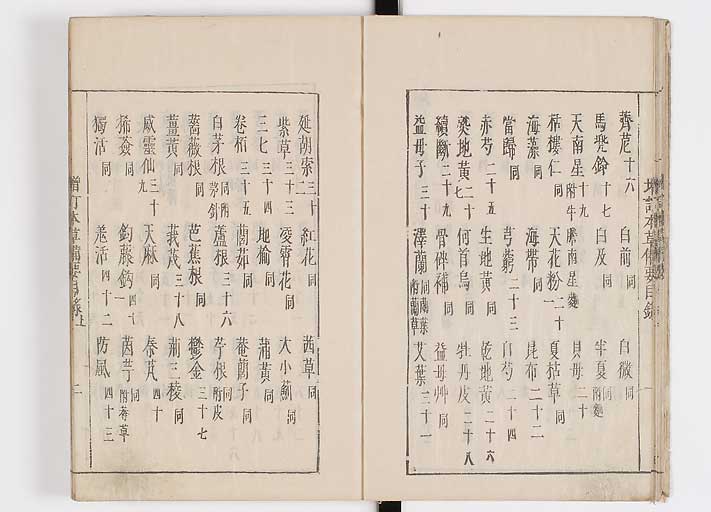 薺苨十六 白前同 白薇同
馬兜鈴十七 白及同 半夏同附麯
天南星十九附牛膽南星麯 貝母二十
栝樓仁同 天花粉二十一 夏枯草同
海藻同 海帶同 昆布二十二
當歸同 芎藭二十三 白芍二十四
赤芍二十五 生地黃同 乾地黃二十六
熟地黃二十七 何首烏同 牡丹皮二十八
續斷二十九 骨碎補同 益母艸同
益母子三十 澤蘭同蘭葉附蘭草 艾葉三十一
增訂本草備要目錄
延胡索三十二 紅花同 茜草同
紫草三十三 凌霄花同 大小薊同
三七三十四 地榆同 蒲黃同
卷栢三十五 蘭茹同 菴䕡子同
白茅根同附茅針 蘆根三十六 苧根同附皮
薔薇根同 芭蕉根同 鬱金三十七
薑黃同 莪茂三十八 荊三稜同
威靈仙三十九 天麻同 秦艽四十
豨薟同 鈎藤鈎四十一 茵芋同附莽草
獨活同 羌活四十二 防風四十三
增訂本草備要目錄上 二